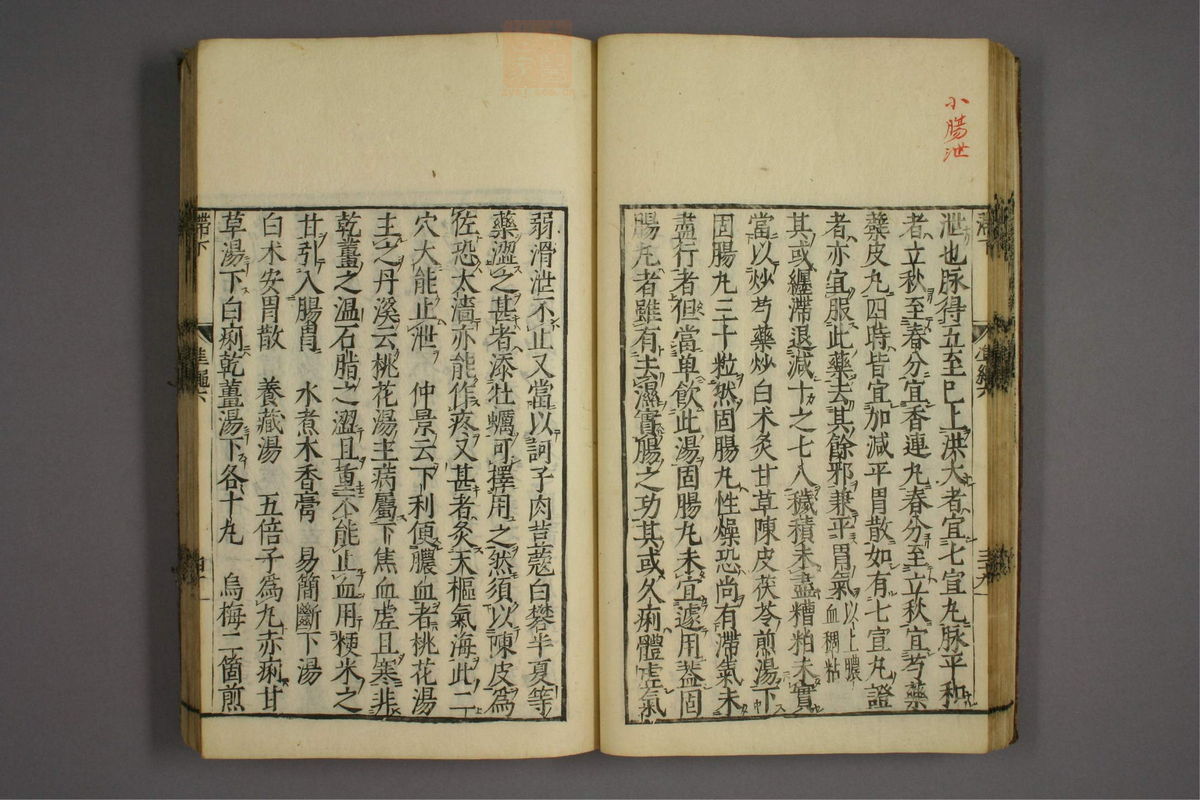 小腸泄
泄也脉得五至已上洪大者宜七宜丸脉平和
者立秋至春分宜香連丸春分至立秋宜芍藥
蘗皮丸四時皆宜加減平胃散如有七宜丸證
者亦宜服此藥去其餘邪兼平胃氣以上膿血稠粘
其或纏滯退減十之七八穢積未盡糟粕未實
當以炒芍藥炒白朮炙甘草陳皮茯苓煎湯下
固腸丸三十粒然固腸丸性燥恐尚有滯氣未
盡行者但當單飲此湯固腸丸未宜遽用葢固
腸丸者雖有去濕實腸之功其或久痢體虛氣
弱滑泄不止又當以訶子肉荳蔻白礬半夏等
藥澀之甚者添牡蠣可擇用之然須以陳皮爲
佐恐太濇亦能作疼又甚者灸天樞氣海此二
穴大能止泄　仲景云下利便膿血者桃花湯
主之丹溪云桃花湯主病屬下焦血虛且寒非
乾薑之温石脂之澀且重不能止血用粳米之
甘引入腸胃　水煮木香膏　易簡斷下湯
白朮安胃散　養藏湯　五倍子爲丸赤痢甘
草湯下白痢乾薑湯下各十丸　烏梅二箇煎
滯下
準繩六